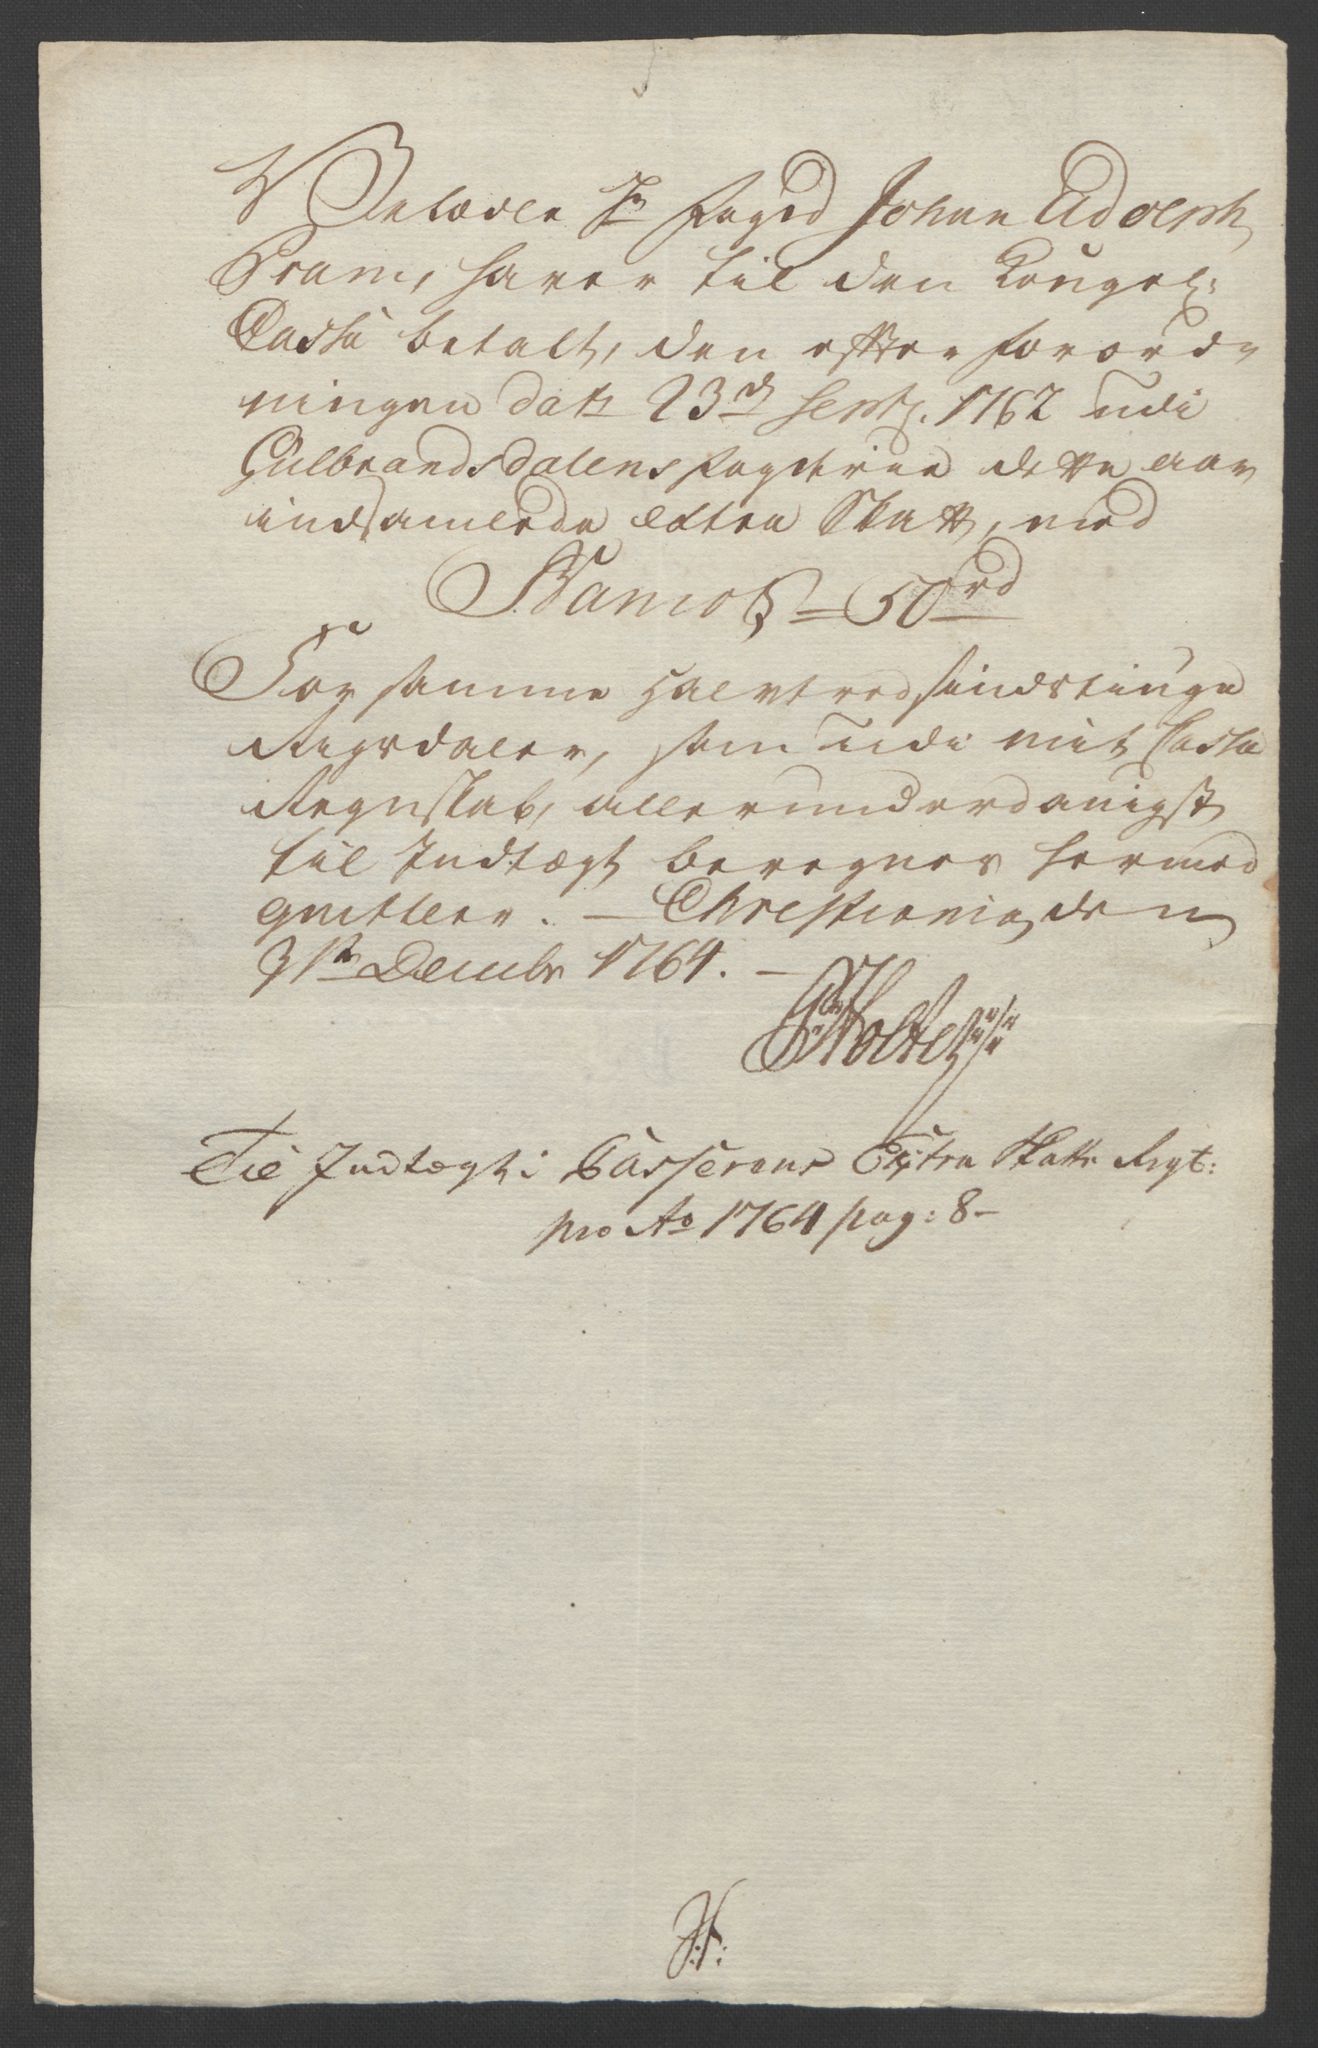 Velædle Hr Foged Johan Adolph
Pram, haver til den Kongel:
Cassa betalt, den efter Forord,
ningen dat: 23de Sept. 1762 udi
Gulbrandsdalens Fogderie dette aar
indsamlede extra Skatt, med
Banco = 50 rd
For samme Halvtredsindstiuge
Rigsdaler, som udi mit Cassa
Regnskab, allerunderdanigst
til Indtægt beregnes hermed
qvitterer. — Christiania, den
31te Decembr 1764. —
Holte
Til Indtægt i Casserens Extra Skatte Regt:
pro Ao 1764 pag: 8 –